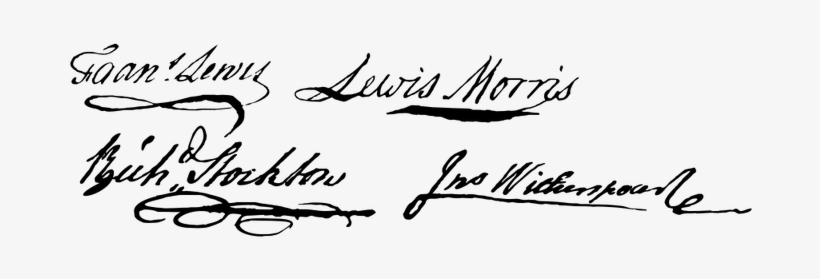 Frans. Lewis Lewis Morris
Richd. Stockton Jno Witherspoon